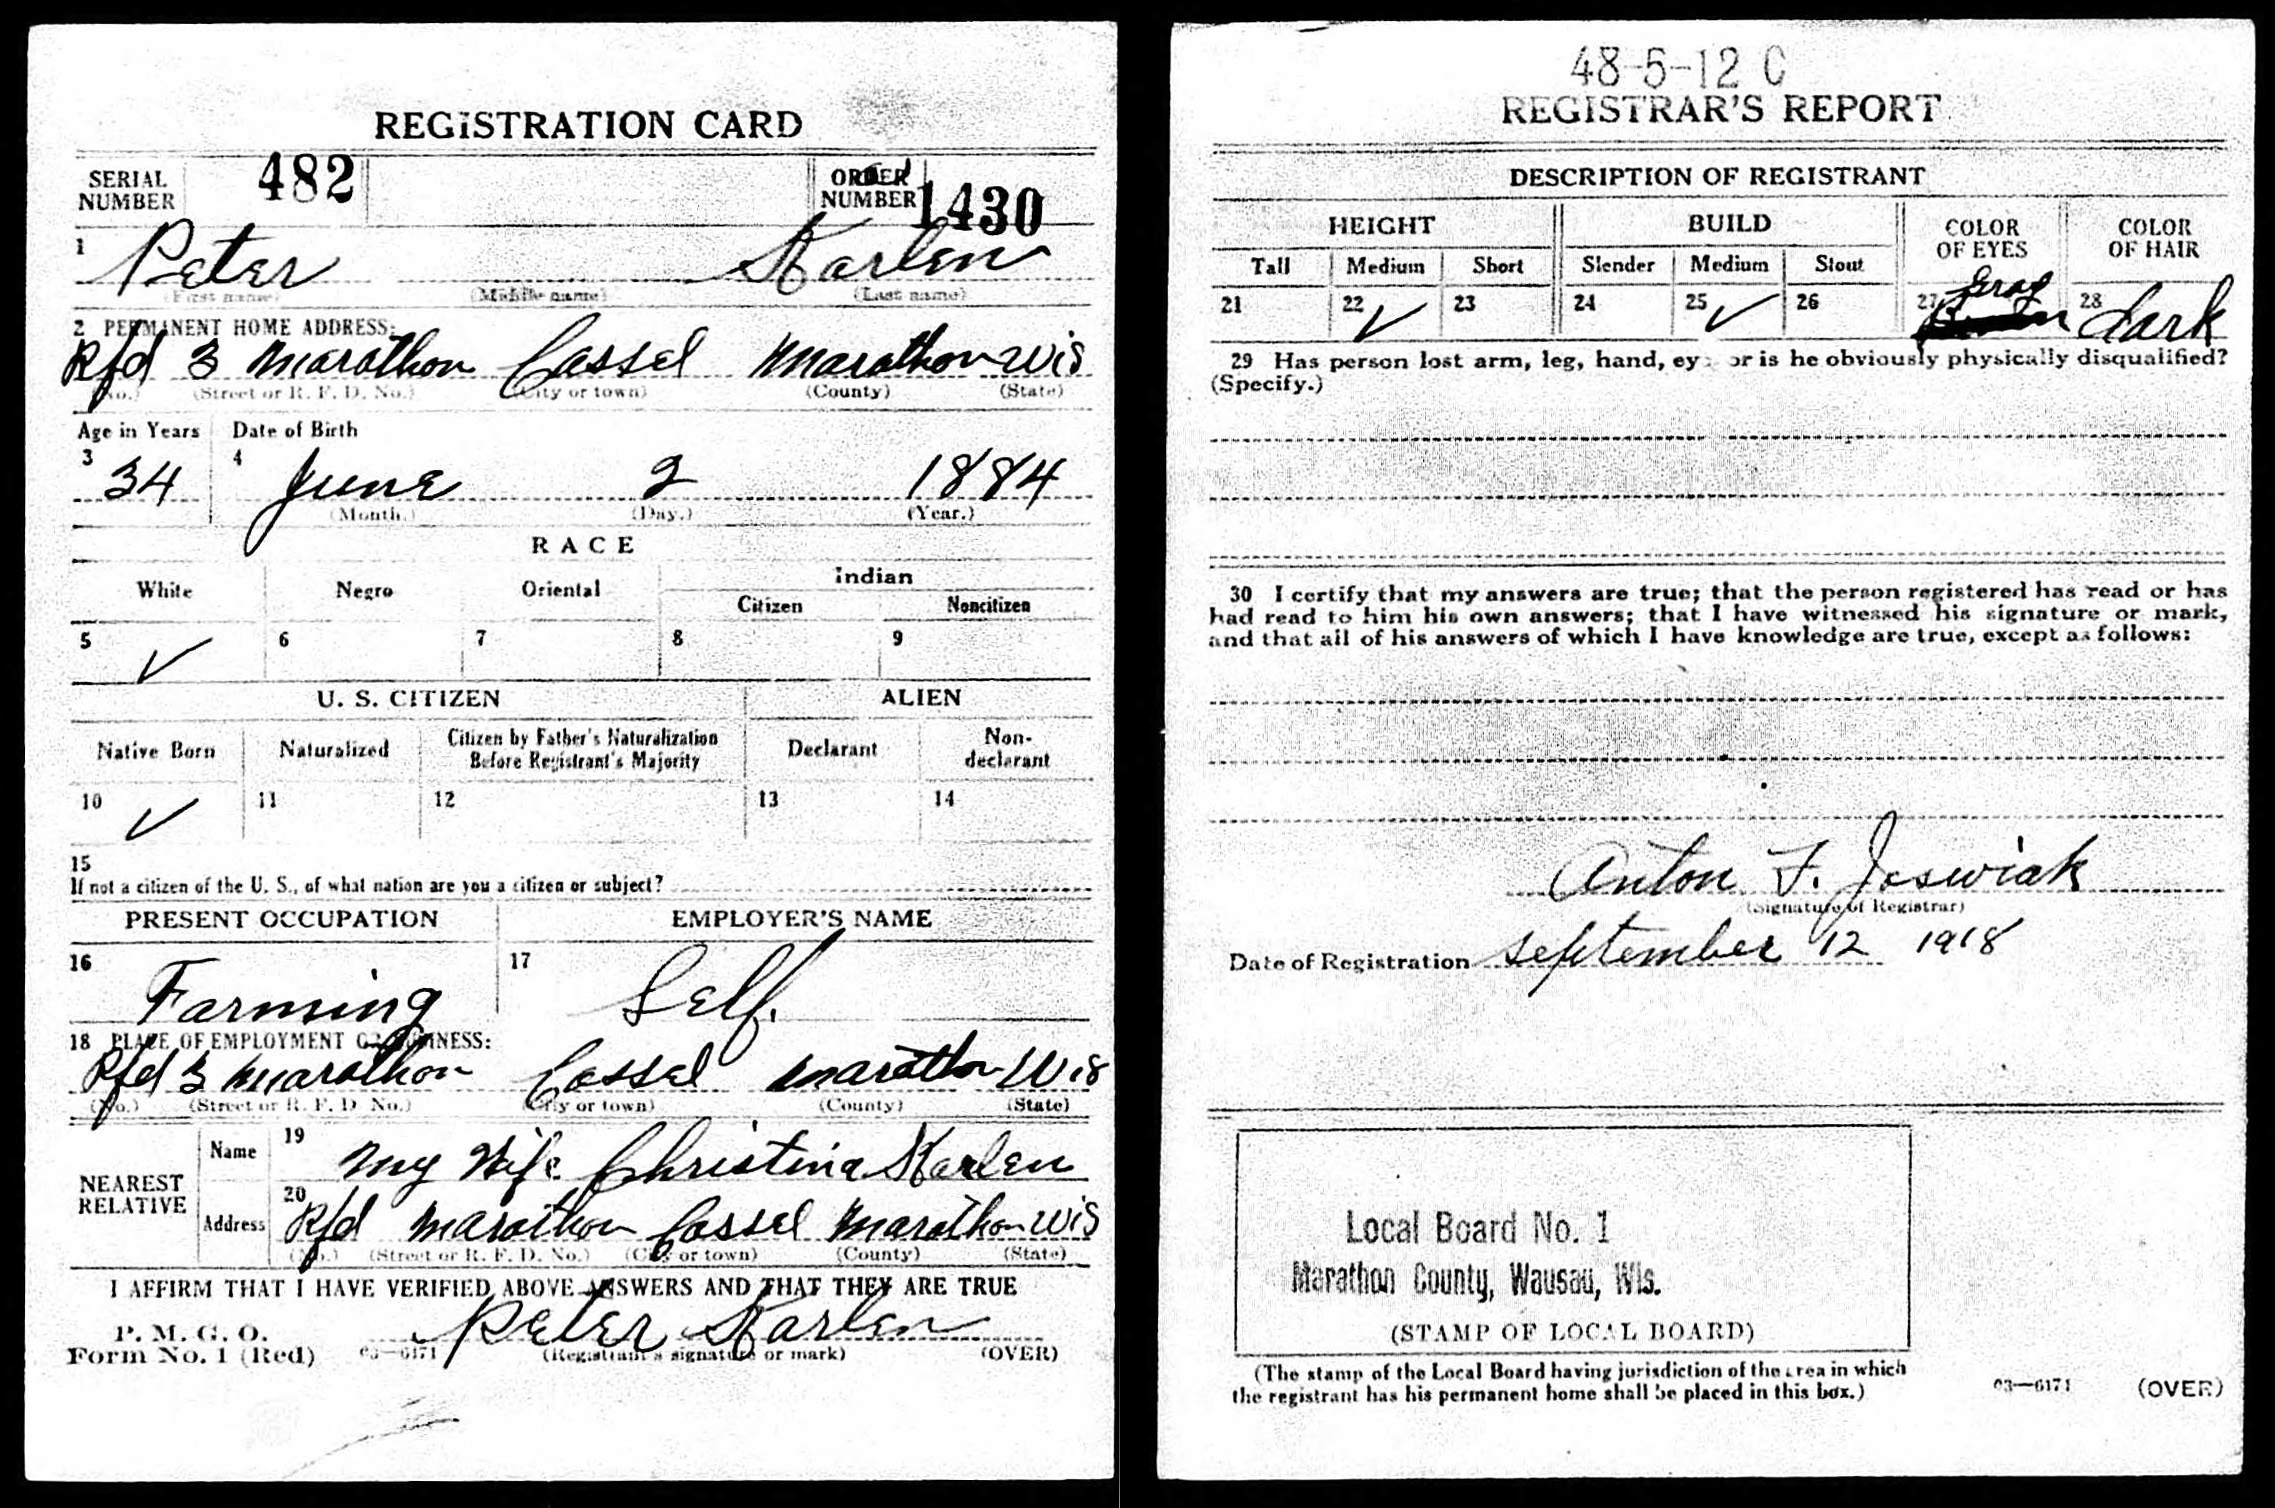 REGISTRATION CARD
SERIAL NUMBER 482 ORDER NUMBER 1430
1 Peter Karlen
(First name) (Middle name) (Last name)
2 PERMANENT HOME ADDRESS:
Rfd 3 Marathon Cassel Marathon Wis
(No.) (Street or R. F. D. No.) (City or town) (County) (State)
Age in Years Date of Birth
3 34 4 June 2 1884
(Month.) (Day.) (Year.)
RACE
White Negro Oriental Indian
Citizen Noncitizen
5 ✓ 6 7 8 9
U. S. CITIZEN ALIEN
Native Born Naturalized Citizen by Father's Naturalization Before Registrant's Majority Declarant Non-declarant
10 ✓ 11 12 13 14
15
If not a citizen of the U. S., of what nation are you a citizen or subject?
PRESENT OCCUPATION EMPLOYER'S NAME
16 Farming 17 Self.
18 PLACE OF EMPLOYMENT OR BUSINESS:
Rfd 3 Marathon Cassel Marathon Wis
(No.) (Street or R. F. D. No.) (City or town) (County) (State)
NEAREST RELATIVE
Name 19 My Wife Christina Karlen
Address 20 Rfd Marathon Cassel Marathon Wis
(No.) (Street or R. F. D. No.) (City or town) (County) (State)
I AFFIRM THAT I HAVE VERIFIED ABOVE ANSWERS AND THAT THEY ARE TRUE
P. M. G. O.
Form No. 1 (Red) 03—6171 Peter Karlen
(Registrant's signature or mark) (OVER)
48-5-12 C
REGISTRAR'S REPORT
DESCRIPTION OF REGISTRANT
HEIGHT BUILD COLOR OF EYES COLOR OF HAIR
Tall Medium Short Slender Medium Stout
21 22 ✓ 23 24 25 ✓ 26 27 Gray 28 dark
29 Has person lost arm, leg, hand, eye, or is he obviously physically disqualified?
(Specify.)
30 I certify that my answers are true; that the person registered has read or has
had read to him his own answers; that I have witnessed his signature or mark,
and that all of his answers of which I have knowledge are true, except as follows:
Anton F. Joswiak
(Signature of Registrar)
Date of Registration September 12 1918
Local Board No. 1
Marathon County, Wausau, Wis.
(STAMP OF LOCAL BOARD)
(The stamp of the Local Board having jurisdiction of the area in which
the registrant has his permanent home shall be placed in this box.)
03—6171 (OVER)